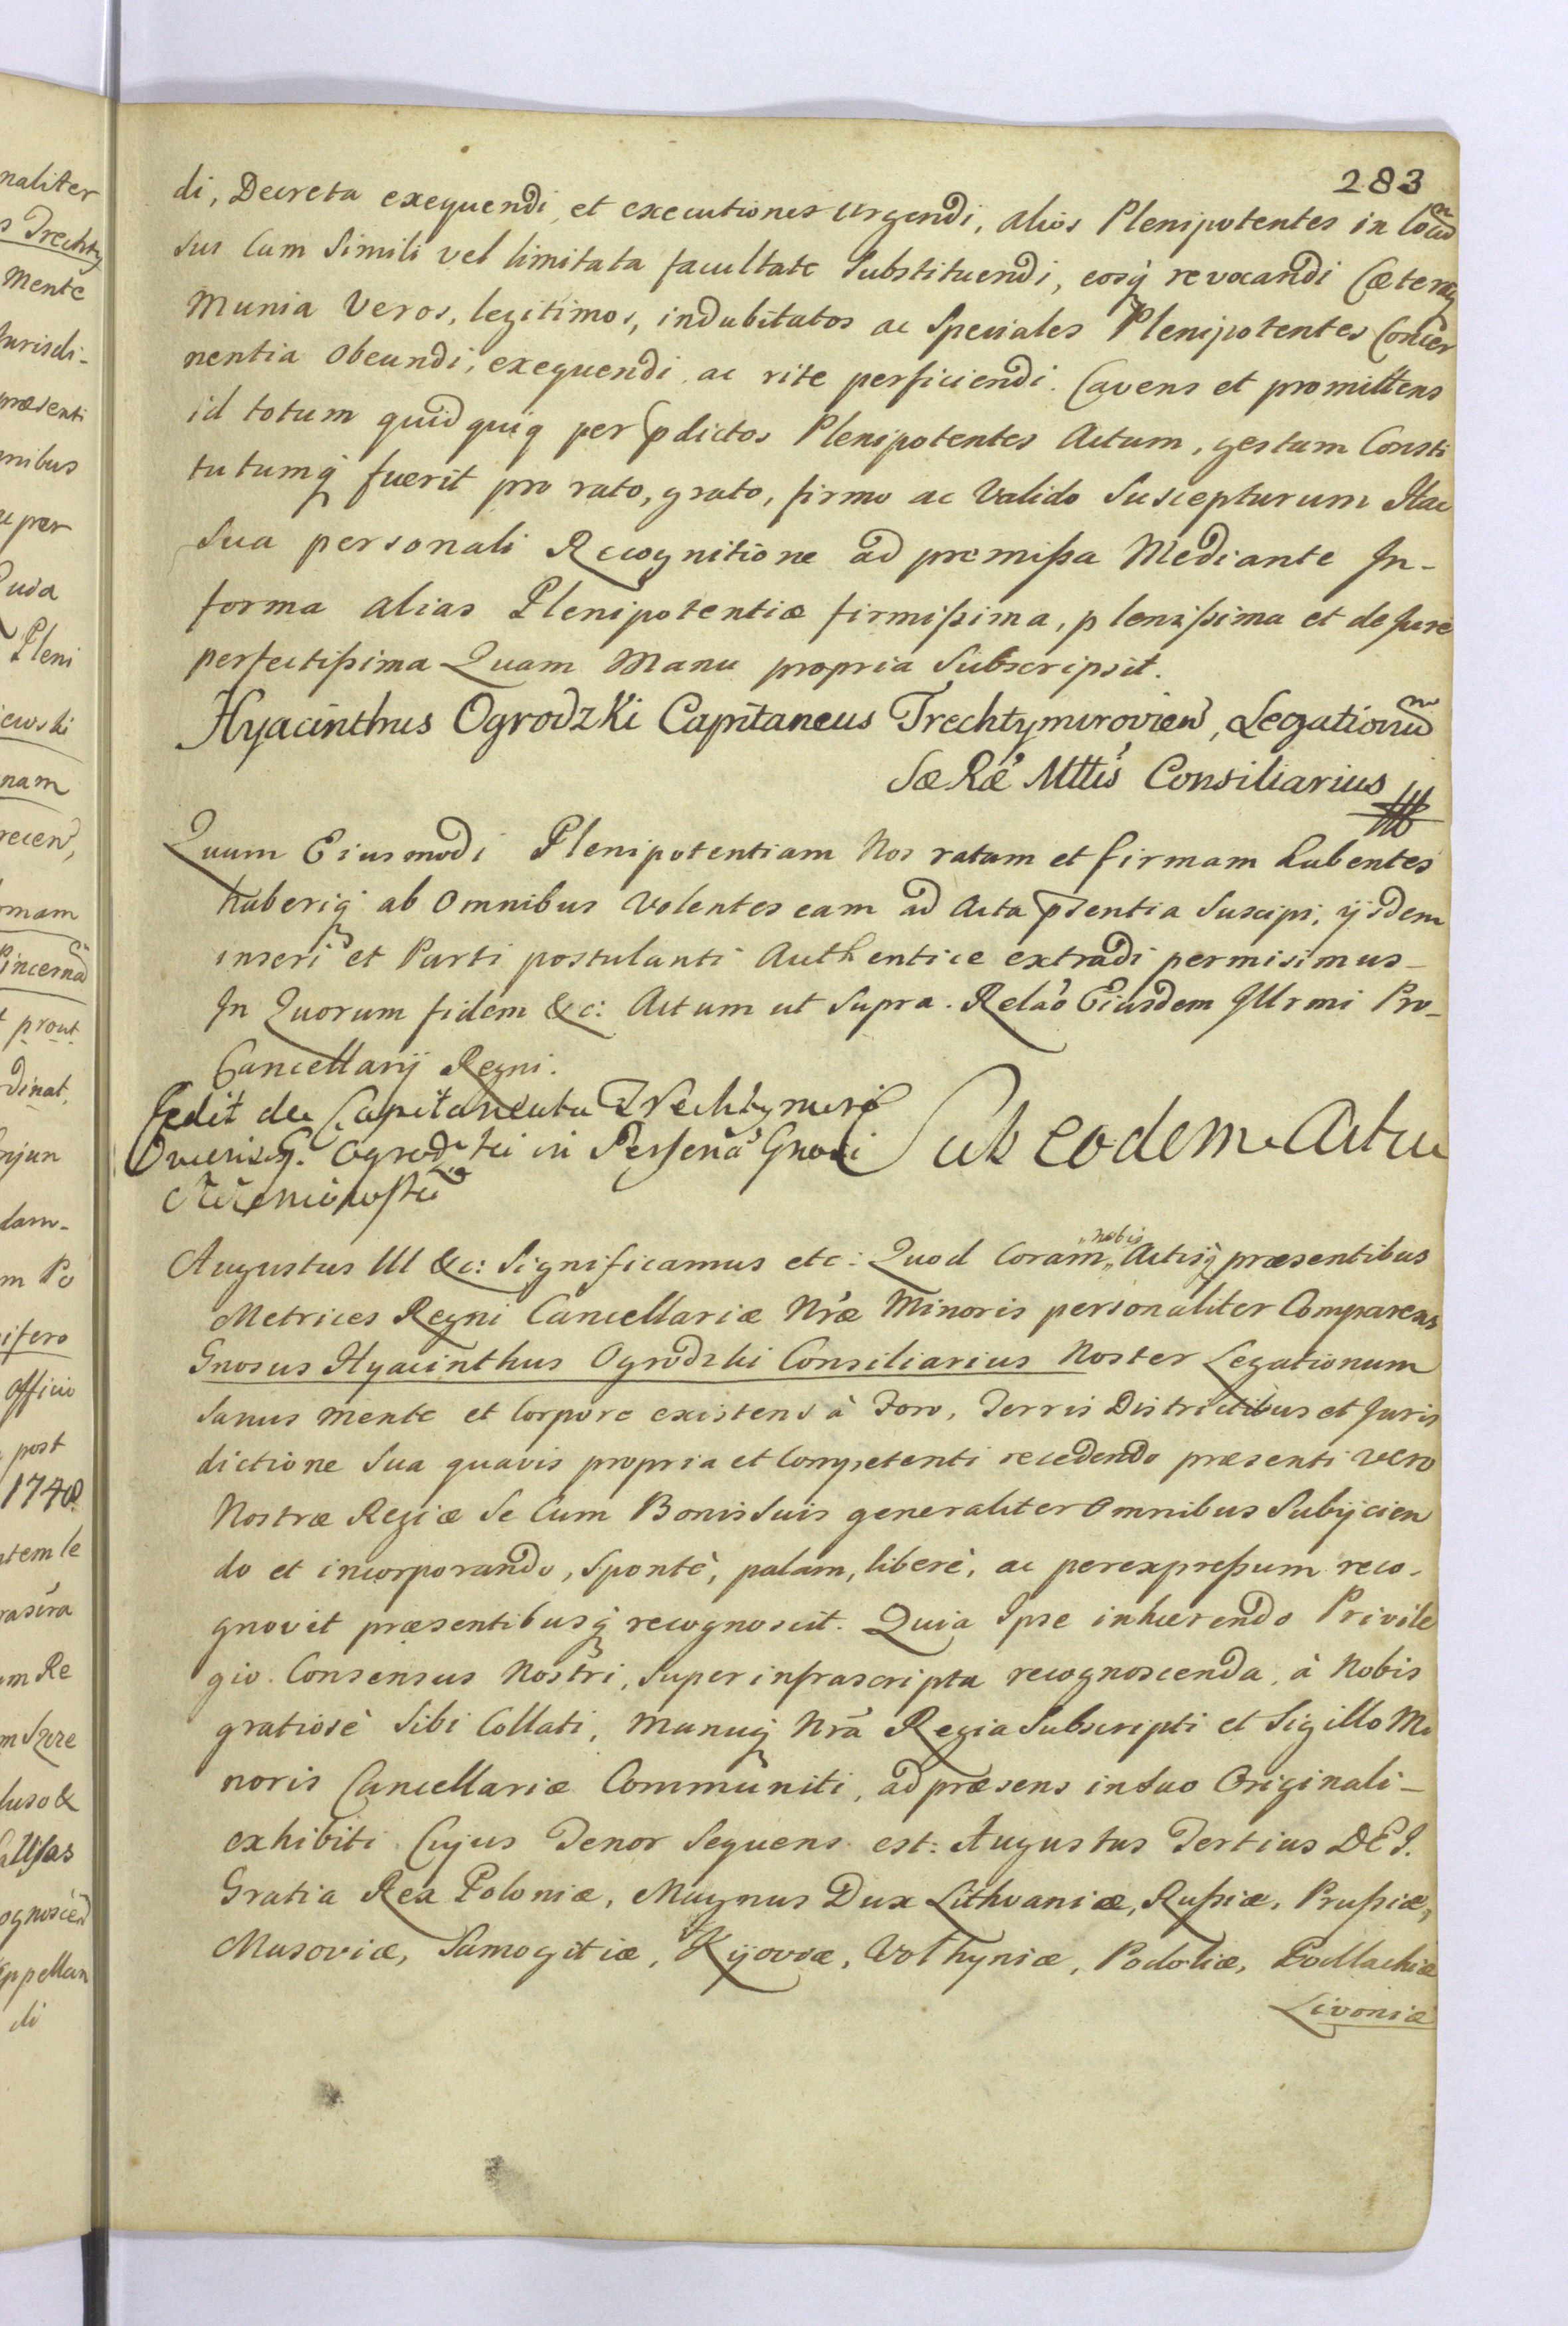 283
di, Decreta exequendi et executiones urgendi, alios Plenipotentes in locum
sui cum simili vel limitata facultate substituendi, eosq̃ revocandi Cæteraq̃
Munia Veros, legitimos, indubitatos ac Speciales Plenipotentes Concer
nentia obeundi, exequendi ac rite perficiendi. Cavens et promittens
id totum quidquiq per p̃dictos Plenipotentes Actum, gestum Consti
tutumq̃ fuerit pro rato, grato, firmo ac Valido Suscepturum Hac
Sua personali Recognitione ad premissa Mediante In-
forma alias Plenipotentiæ firmissima, plenissima et de Jure
perfectissima Quam Manu propria Subscripsit.
Hyacinthus Ogrodzki Capitaneus Trechtymirovien̄, Legationum
Sæ Ræ Mttis Consiliarius
Quum Eiusmodi Plenipotentiam Nos ratam et firmam habentes
haberiq̃ ab Omnibus Volentes eam ad Acta p̃sentia Suscipi, ijsdem
inseri et Parti postulanti Authentice extradi permisimus-
In Quorum fidem &c: Actum ut Supra. Relaõ Eiusdem Illrmi Pro-
Cancellarij Regni.
Cedit de Capitaneatu Trechtymiro
G. Ogrodzki in Persenã Gnosi
Sub eodem Actu
Augustus III &c: Significamus etc: Quod Coram nobis Actisq̃ præsentibus
Metrices Regni Cancellariæ Nræ Minoris personaliter Comparens
Gnosus Hyacinthus Ogrodzki Consiliarius Noster Legationum
Sanus mente et Corpore existens à Foro, Terris Districtibus et Juris
dictione Sua quavis propria et Competenti recedendo præsenti vero
Nostræ Regiæ Se Cum Bonis Suis generaliter Omnibus Subijcien
do et incorporando, Spontè, palam, liberè, ac perexpressum reco-
gnovit præsentibusq̃ recognoscit. Quia Ipse inhærendo Privile
gio Consensus Nostri, Super infrascripta recognoscenda, à Nobis
gratiosè Sibi Collati, Manuq̃ Nrã Regia Subscripti et Sigillo Mi
noris Cancellariæ Communiti, ad præsens in Suo Originali-
exhibiti Cujus Tenor Sequens est: Augustus Tertius DEI.
Gratia Rex Poloniæ, Magnus Dux Lithvaniæ, Russiæ, Prussiæ,
Masoviæ, Samogitiæ, Kijoviæ, Volhyniæ, Podoliæ, Podlachiæ
Livoniæ